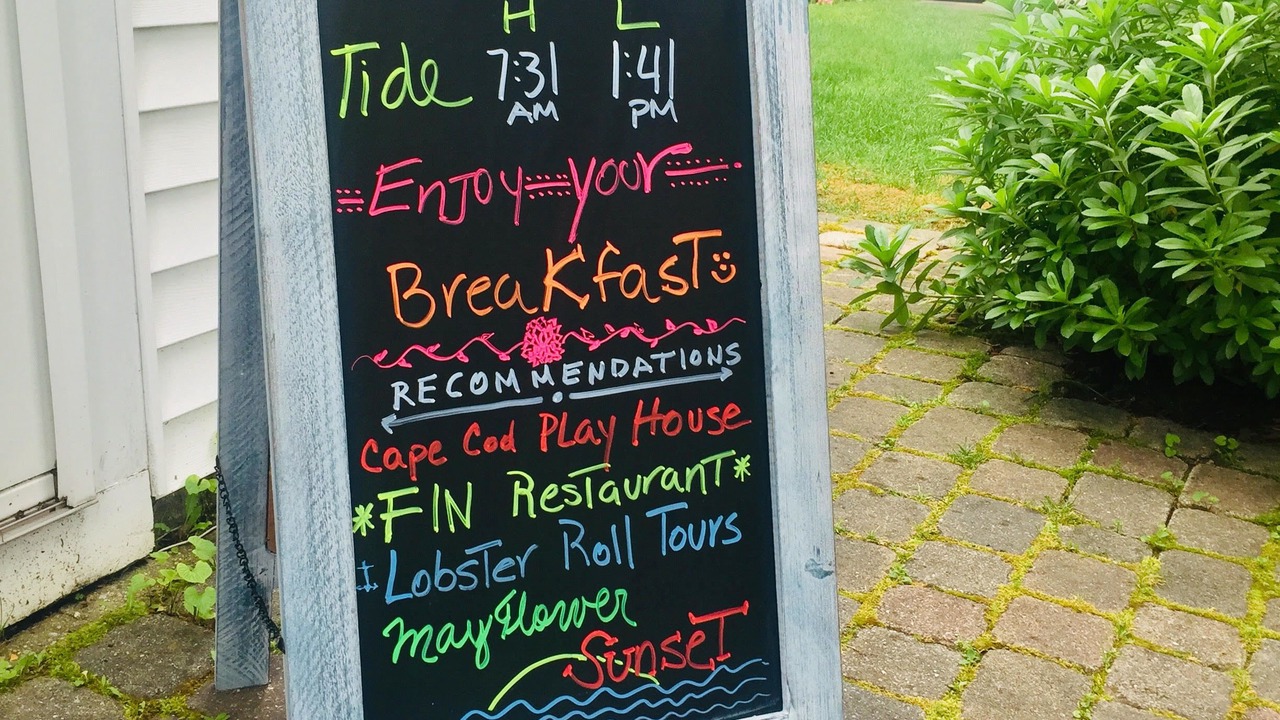 H L
Tide 7:31 1:41
AM PM
Enjoy your
Breakfast
RECOMMENDATIONS
Cape Cod Play House
*FIN Restaurant*
Lobster Roll Tours
Mayflower
Sunset